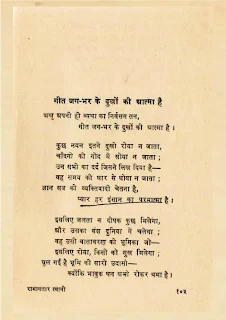 गीत जग-भर के दुखों की आत्मा है
अश्रु अपनी ही व्यथा का निर्वसन तन,
गीत जग-भर के दुखों की आत्मा है।
कुछ नयन इतने दुखी रोया न जाता,
चाँदनी की गोद में सोया न जाता;
उन सभी का दर्द जिसने लिख दिया है—
वह समय की धार से धोया न जाता;
ज्ञान सब की व्यक्तिवादी चेतना है,
प्यार हर इंसान का परमात्मा है।
इसलिए जलता न दीपक कुछ मिलेगा,
और उसका वंश दुनिया में चलेगा;
वह उसी वातावरण की भूमिका जो—
इसलिए रोया, किसी को सुख मिलेगा;
घुल गई है भूमि की सारी उदासी—
क्योंकि भावुक घन अभी रोकर थमा है।
रामावतार त्यागी
१०३